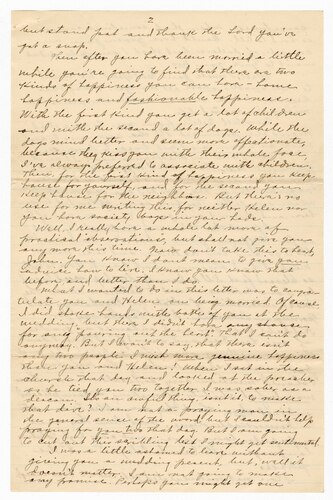 2
but stand pat and thank the Lord you've
got a snap.
Then after you have been married a little
while you're going to find that there are two
kinds of happiness you can have - home
happiness and fashionable happiness.
With the first kind you get a lot of children
and with the second a lot of dogs. While the
dogs mind better and seem more affectionate,
because they kiss you with their whole face,
I've always preferred to associate with children.
Then, for the first kind of happiness you keep
house for yourself, and for the second you
keep house for the neighbors. But there's no
use for me writing this for neither Helen nor
you have society bugs in your heads.
Well, I really have a whole lot more of
practical observations, but shall not give you
any more this time. Now don't take this to heart,
John, you know I don't mean to give you
advice how to live. I know you know that
before and better than I do.
What I wanted to do in this letter was to congratulate
you and Helen on being married. Of course
I did shake hands with both of you at the
wedding, but there I didn't have any chance
for anything out of the heart that I could do
anyway. But I want to say that there isn't
any two people I wish more genuine happiness
than you and Helen. When I sat in the
church that day and looked at the preacher
as he tied you two together I was sober as a
deacon. It's an awful thing, isn't it, to make
that dive? I am not a praying man in
the general sense of the word but I couldn't help
praying for you two that day. But I am going
to cut out this scribbling lest I might get sentimental.
I was a little ashamed to leave without
giving you a wedding present, but, well it
doesn't matter. I am not going to make
any promise. Perhaps you might get one